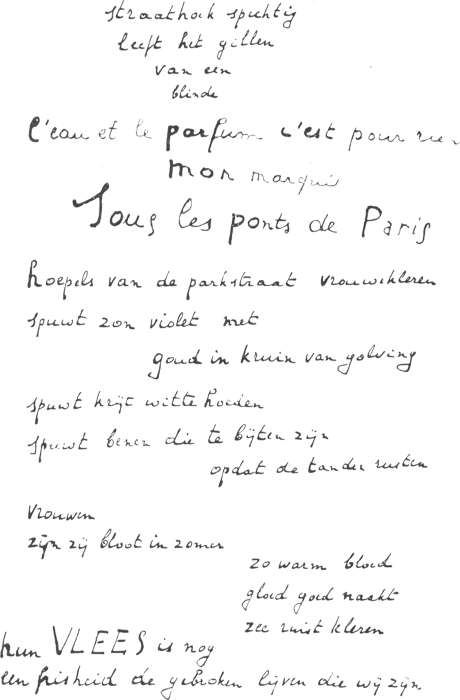 straathoek spichtig
leeft het gillen
van een
blinde
l'eau et le parfum c'est pour rien
mon marquis
Sous les ponts de Paris
hoepels van de parkstraat vrouwekleren
spuwt zon violet met
goud in kruin van golving
spuwt krijt witte hoeden
spuwt benen die te bijten zijn
opdat de tanden rusten
vrouwen
zijn zij bloot in zomer
zo warm bloed
gloed goed naakt
zee ruist kleren
hun VLEES is nog
een frisheid de gebroken lijven die wij zijn